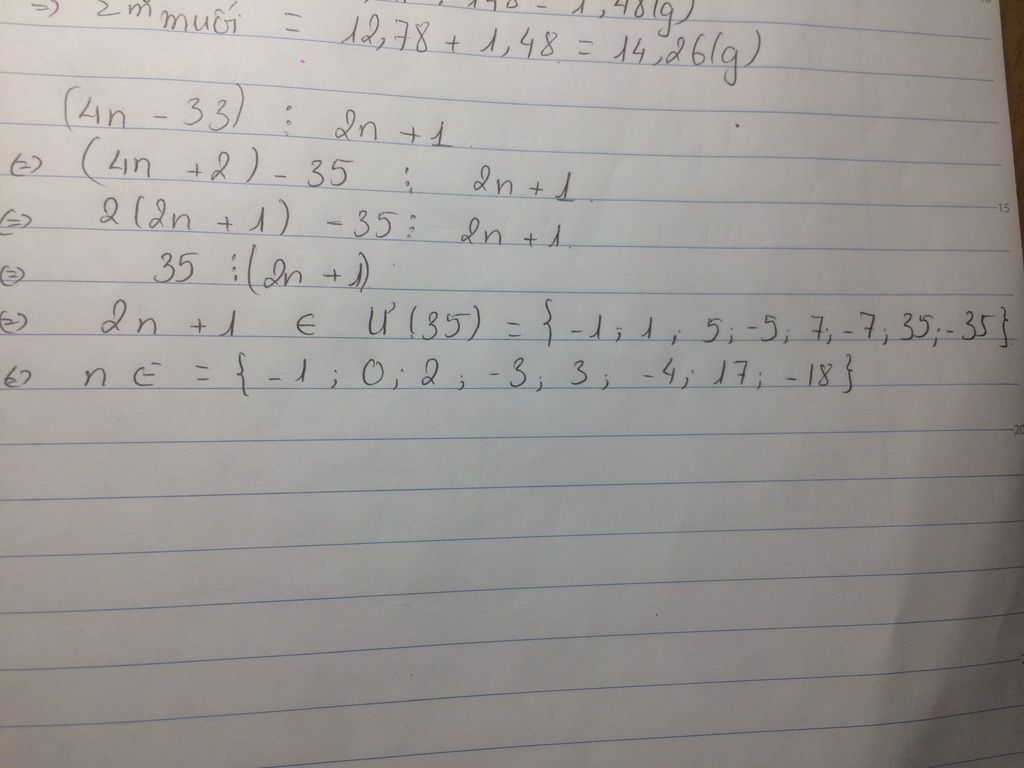 => 2 m muối = 12,78 + 1,48 = 14,26(g)
(4n - 33) ⋮ 2n + 1
<=> (4n + 2) - 35 ⋮ 2n + 1
<=> 2(2n + 1) - 35 ⋮ 2n + 1
<=> 35 ⋮ (2n + 1)
<=> 2n + 1 ∈ Ư(35) = {-1; 1; 5; -5; 7; -7; 35; -35}
<=> n ∈ = {-1; 0; 2; -3; 3; -4; 17; -18}
15
20